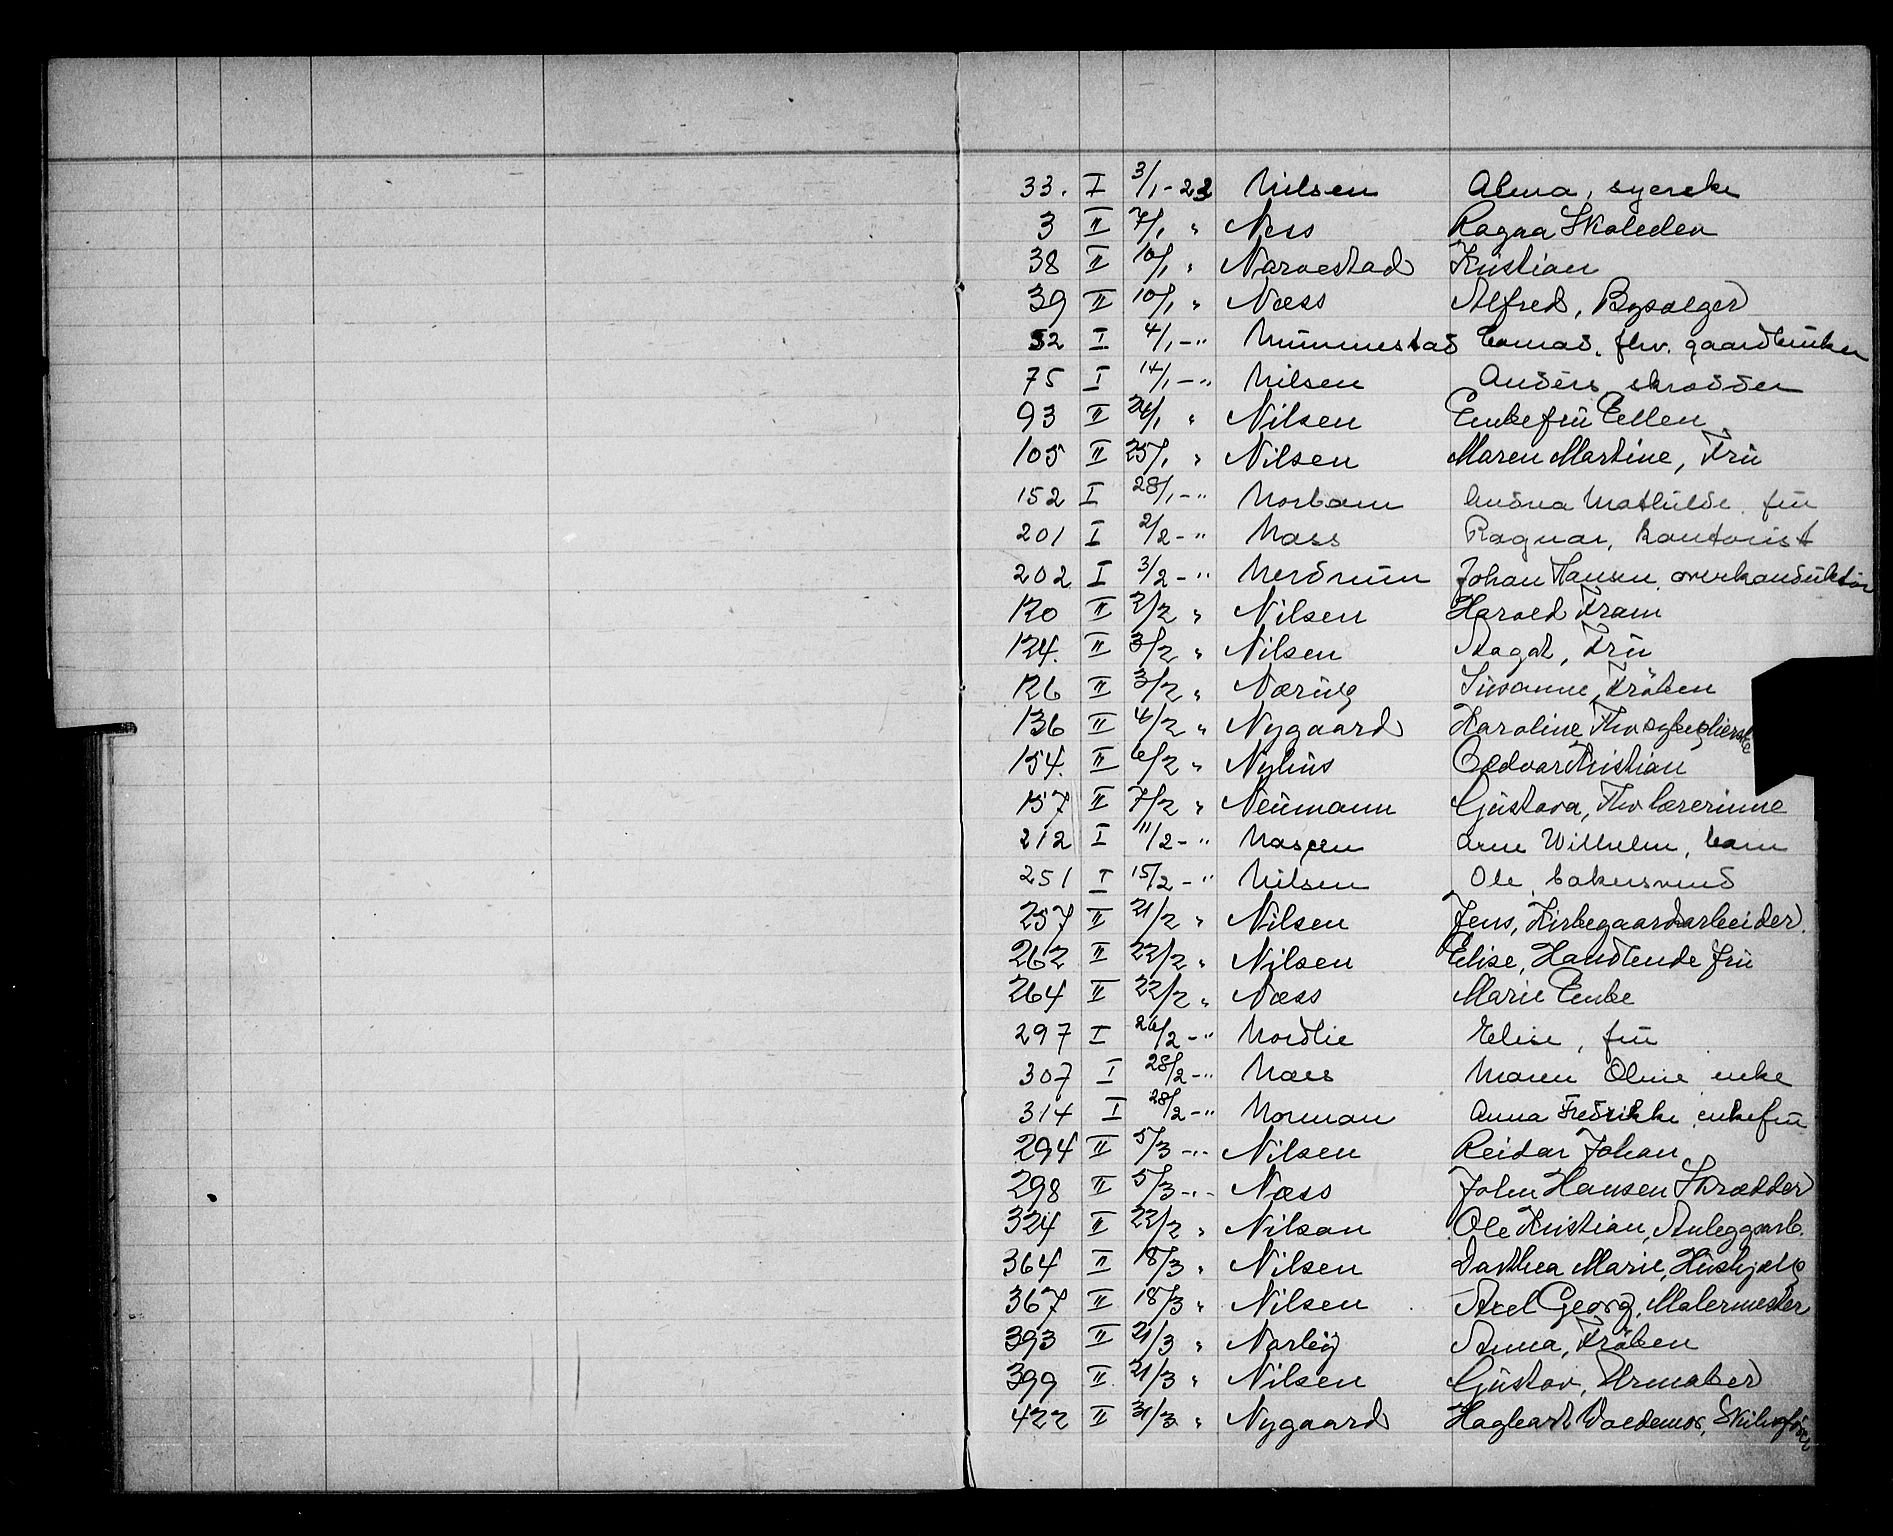 33. I 3/1-23 Nilsen Alma, syerske
3 II 7/1 " Ness Ragna Skoleelev
38 II 10/1 " Narvestad Kristian
39 II 10/1 " Næss Alfred, Bysælger
52 I 4/1-" Nummestad Tomas. fhv. gaardbruker
75 I 14/1-" Nilsen Anders skrædder
93 II 24/1 " Nilsen Enkefru Ellen
105 II 25/1 " Nilsen Maren Martine, Fru
152 I 28/1-" Andrea Mathilde. fru
201 I 2/2-" Næss Ragnar, kontorist
202 I 3/2-" Nerdrum Johan Hansen overkonduktør
120 II 2/2 " Nilsen Harald Fram
124. II 3/2 " Nilsen Aagot, Fru
126 II 3/2 " Næring Susanne, Frøken
136 II 4/2 " Nygaard Karoline, Fhv
154. II 6/2 " Nyhus Edvart Kristian
157 II 7/2 " Neumann Gustava, Fhv lærerinne
212 I 11/2-" Arne Wilhelm, barn
251 I 15/2-" Nilsen Ole, bakersvend
257 II 21/2 " Nilsen Jens, Kirkegaardsarbeider.
262 II 22/2 " Nilsen Elise, Handlende fru
264 II 22/2 " Næss Marie Enke
297 I 26/2-" Nordlie Elise, fru
307 I 28/2-" Næss Maren Oline enke
314 I 28/2-" Norman Anna Fredrikke, enkefru
294 II 5/3-" Nilsen Reidar Johan
298 II 5/3-" Næss John Hansen Skrædder
324 II 22/2 " Nilsen Ole Kristian, Anleggsarb.
364 II 18/3 " Nilsen Dorthea Marie, Hushjælp
367 II 18/3 " Nilsen Axel Georg, Malermester
393 II 21/3 " Norby Anna, Frøken
399 II 21/3 " Nilsen Gustav, Urmaker
422 II 31/3 " Nygaard Hagbart Valdemar,